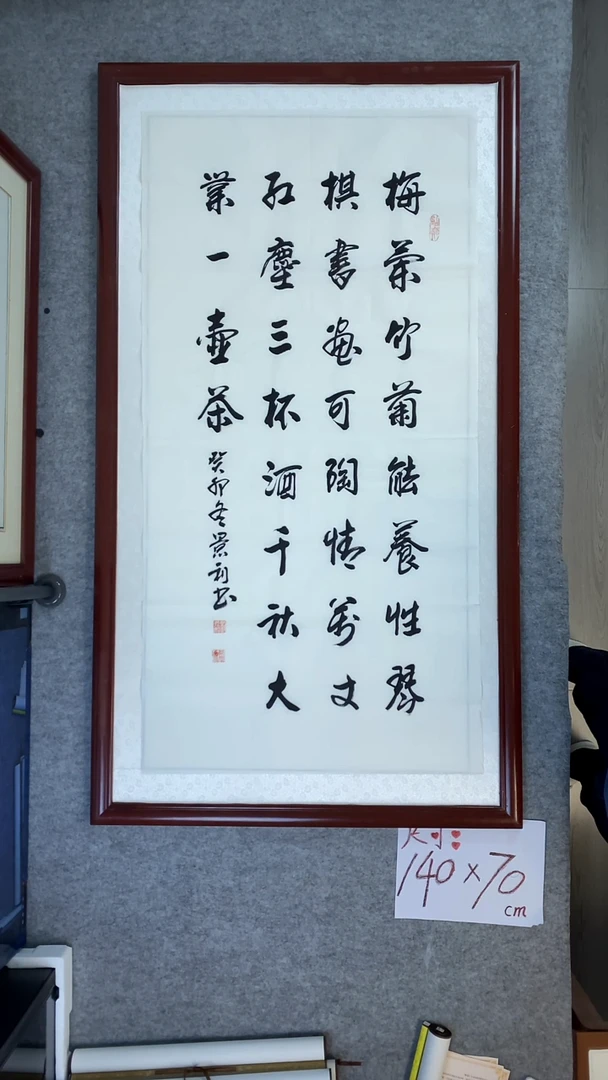 梅兰竹菊能养性琴
棋書画可陶情萬丈
红塵三杯酒千秋大
業一壶茶
癸卯冬景利书
尺寸:
140×70
cm